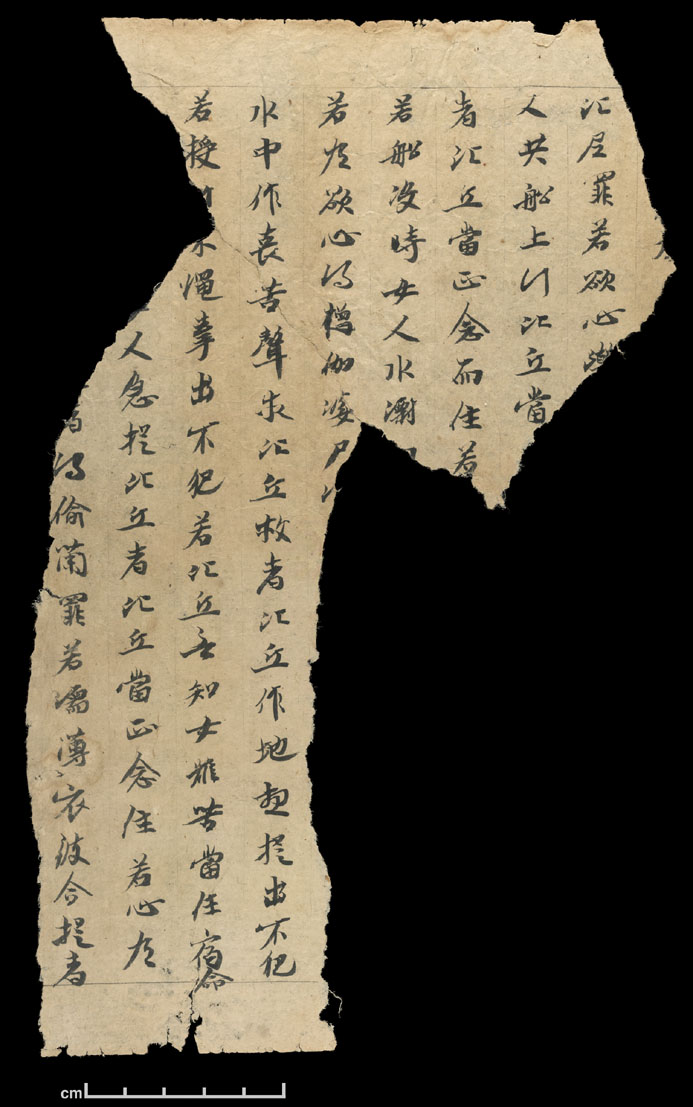 比尼罪若欲心
人共船上行比丘當
者比丘當正念而住若
若船没時女人水漂
若起欲心得僧伽婆尸
水中作哀苦聲求比丘救者比丘作地想捉出不犯
若授木繩牽出不犯若比丘言知女雖苦當任宿命
人急捉比丘者比丘當正念住若心起
得偷蘭罪若濡薄衣鉢合捉者
cm